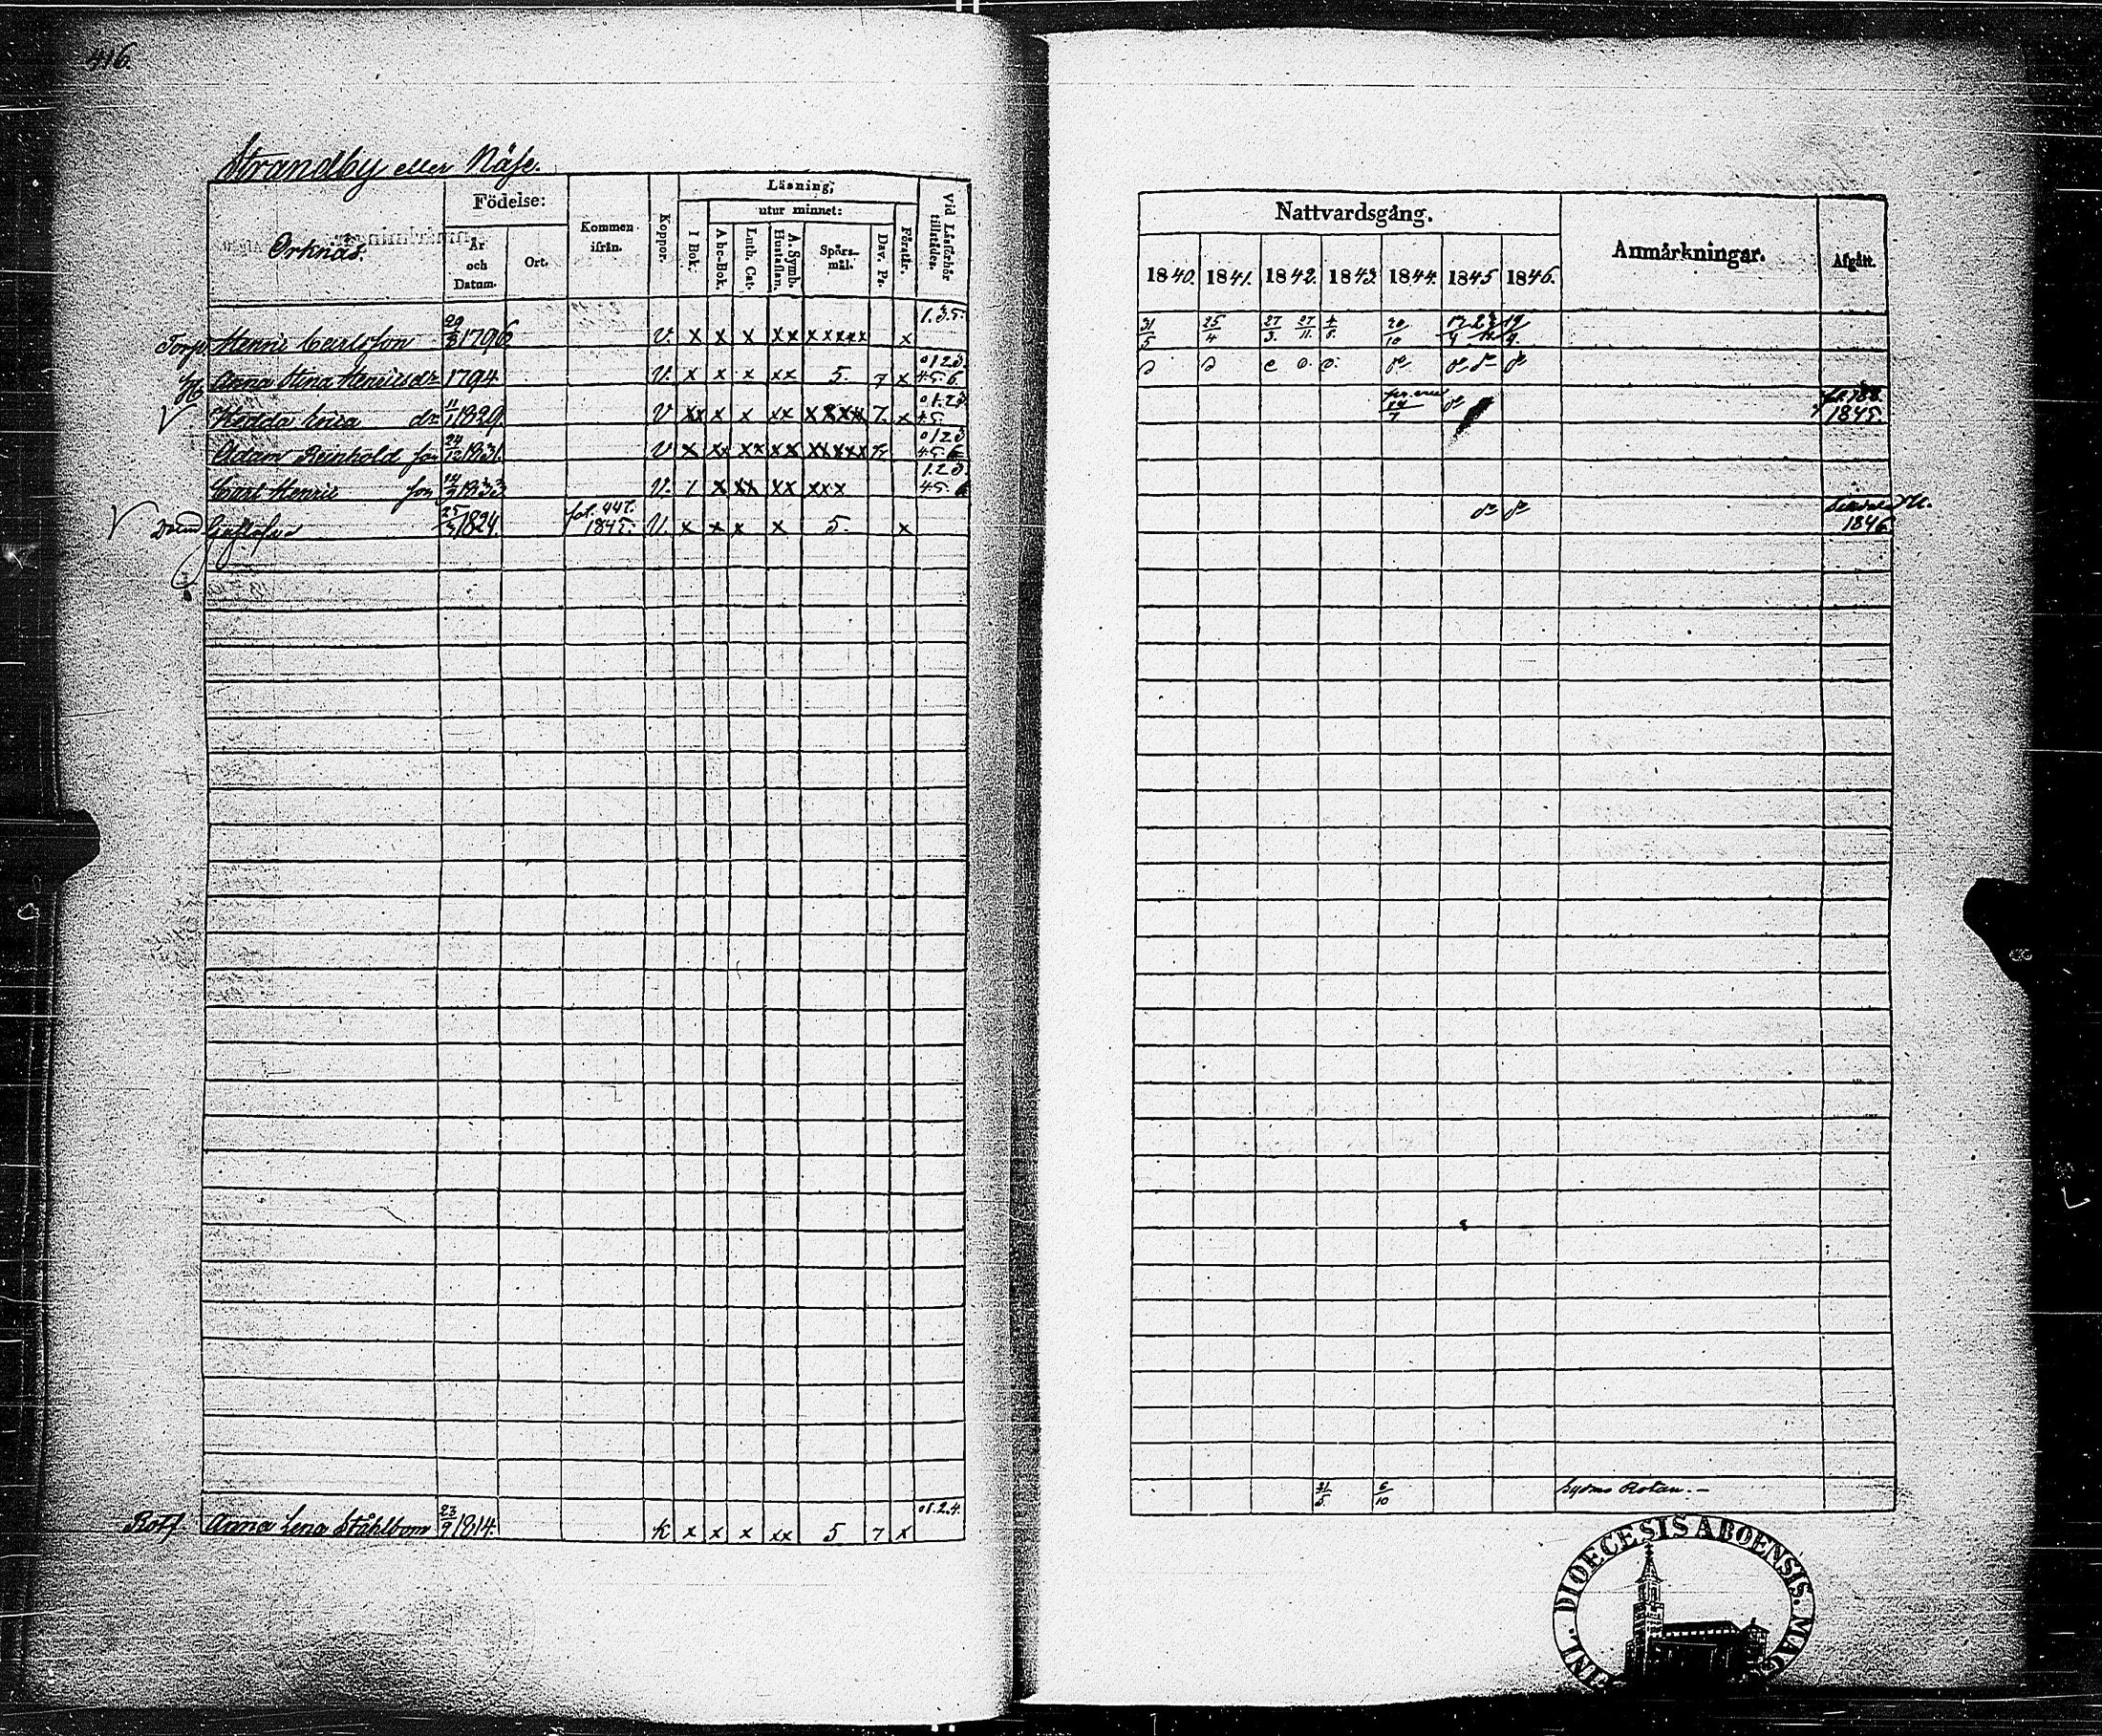 416.
Strandby eller Näse.
Orknäs.
Födelse:
År och Datum.
Ort.
Kommen ifrån.
Koppor.
Läsning,
I Bok.
utur minnet:
A bc-Bok.
Luth. Cat.
A. Symb. Hustaflan.
Spörs-mål.
Dav. Ps.
Förstår.
Vid Läsförhör tillstädes.
Torp. Henric Carlsson 29/3 1796 V. x x x xx xxxxx x 1.3.5.
H. Anna Stina Henricsdr 1794. V. x x x xx 5. 7 x 0123. 4.5.6.
Hedda dr 11/1 1829. V xx x x xx xxxxx 7. x 01.23 4.5.
Adam Reinhold son 24/12 1831. V x xx xx xx xxxxx 0123 4.5.6
Carl Henric son 14/9 1833 V. 1 x xx xx xxx 1.2.3. 4.5.6
Gustafsson 25/3 1824. fol. 447. 1845. V. x x x x 5. x
Rotf Anna Lena Ståhlbom 23/9 1814. k x x x xx 5 7 x 01.2.4.
Nattvardsgång.
Anmärkningar.
Afgått.
1840. 1841. 1842. 1843 1844. 1845 1846.
31/5 25/4 27/3. 27/11. 20/10
14/7
1845.
1846
31/5 6/10 Rotan.
DIOECESIS ABOENSIS. MAG
FINL.